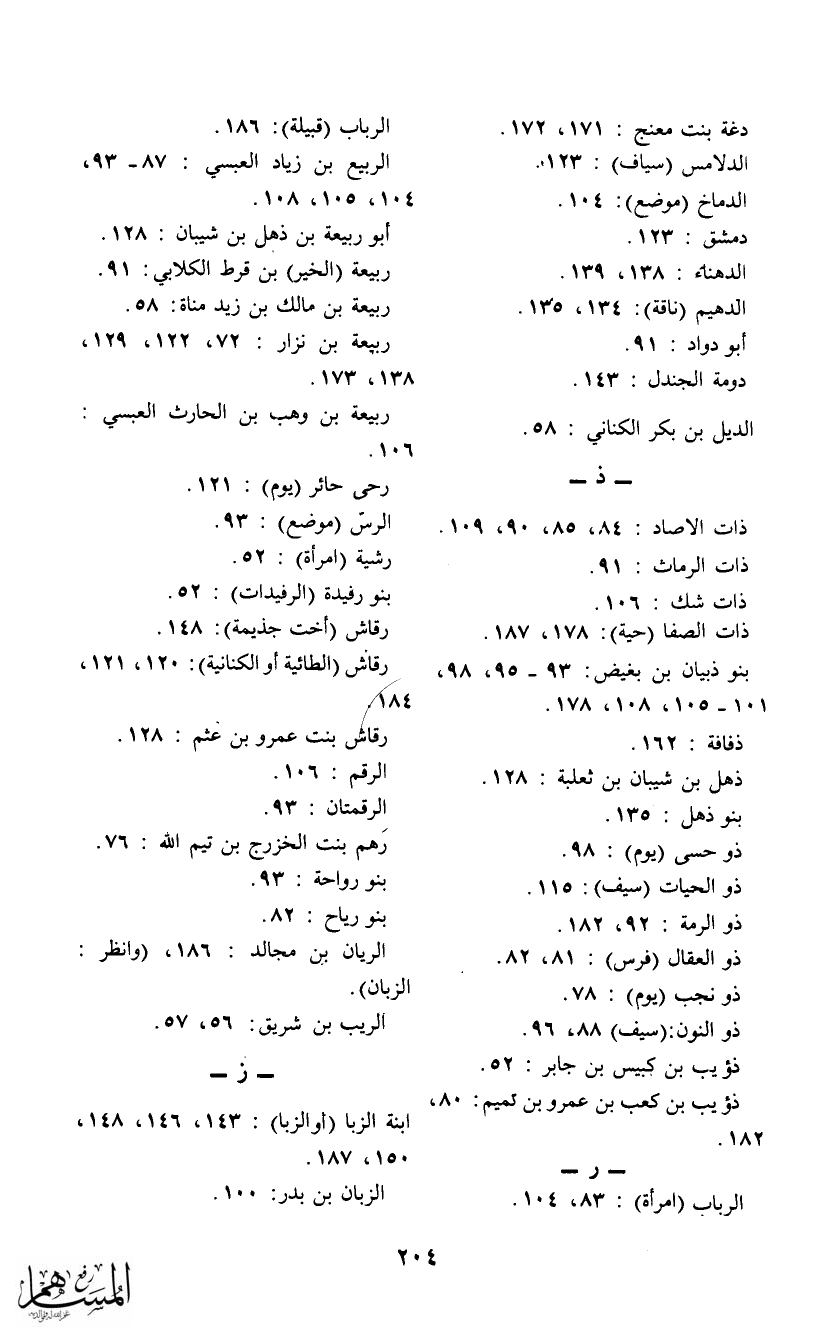 دغة بنت معنج : ١٧١، ١٧٢.
الدلامس (سياف) : ١٢٣.
الدماخ (موضع): ١٠٤.
دمشق : ١٢٣.
الدهناء : ١٣٨، ١٣٩.
الدهيم (ناقة): ١٣٤، ١٣٥.
أبو دواد : ٩١.
دومة الجندل : ١٤٣.
الديل بن بكر الكناني : ٥٨.
ـ ذ ـ
ذات الاصاد : ٨٤، ٨٥، ٩٠، ١٠٩.
ذات الرماث : ٩١.
ذات شك : ١٠٦.
ذات الصفا (حية): ١٧٨، ١٨٧.
بنو ذبيان بن بغيض: ٩٣ ـ ٩٥، ٩٨،
١٠١ ـ ١٠٥، ١٠٨، ١٧٨.
ذفافة : ١٦٢.
ذهل بن شيبان بن ثعلبة : ١٢٨.
بنو ذهل : ١٣٥.
ذو حسى (يوم) : ٩٨.
ذو الحيات (سيف): ١١٥.
ذو الرمة : ٩٢، ١٨٢.
ذو العقال (فرس) : ٨١، ٨٢.
ذو نجب (يوم) : ٧٨.
ذو النون:(سيف) ٨٨، ٩٦.
ذؤيب بن كبيس بن جابر : ٥٢.
ذؤيب بن كعب بن عمرو بن تميم: ٨٠،
١٨٢.
ـ ر ـ
الرباب (امرأة) : ٨٣، ١٠٤.
الرباب (قبيلة): ١٨٦.
الربيع بن زياد العبسي : ٨٧ ـ ٩٣،
١٠٤، ١٠٥، ١٠٨.
أبو ربيعة بن ذهل بن شيبان : ١٢٨.
ربيعة (الخير) بن قرط الكلابي: ٩١.
ربيعة بن مالك بن زيد مناة: ٥٨.
ربيعة بن نزار : ٧٢، ١٢٢، ١٢٩،
١٣٨، ١٧٣.
ربيعة بن وهب بن الحارث العبسي :
١٠٦.
رحى حائر (يوم) : ١٢١.
الرسّ (موضع) : ٩٣.
رشية (امرأة) : ٥٢.
بنو رفيدة (الرفيدات) : ٥٢.
رقاش (أخت جذيمة): ١٤٨.
رقاش (الطائية أو الكنانية): ١٢٠، ١٢١،
١٨٤.
رقاش بنت عمرو بن غثم : ١٢٨.
الرقم : ١٠٦.
الرقمتان : ٩٣.
رَهم بنت الخزرج بن تيم الله : ٧٦.
بنو رواحة : ٩٣.
بنو رياح : ٨٢.
الريان بن مجالد : ١٨٦، (وانظر :
الزبان).
الريب بن شريق: ٥٦، ٥٧.
ـ ز ـ
ابنة الزبا (أو الزبا) : ١٤٣، ١٤٦، ١٤٨،
١٥٠، ١٨٧.
الزبان بن بدر: ١٠٠.
٢٠٤
رفع